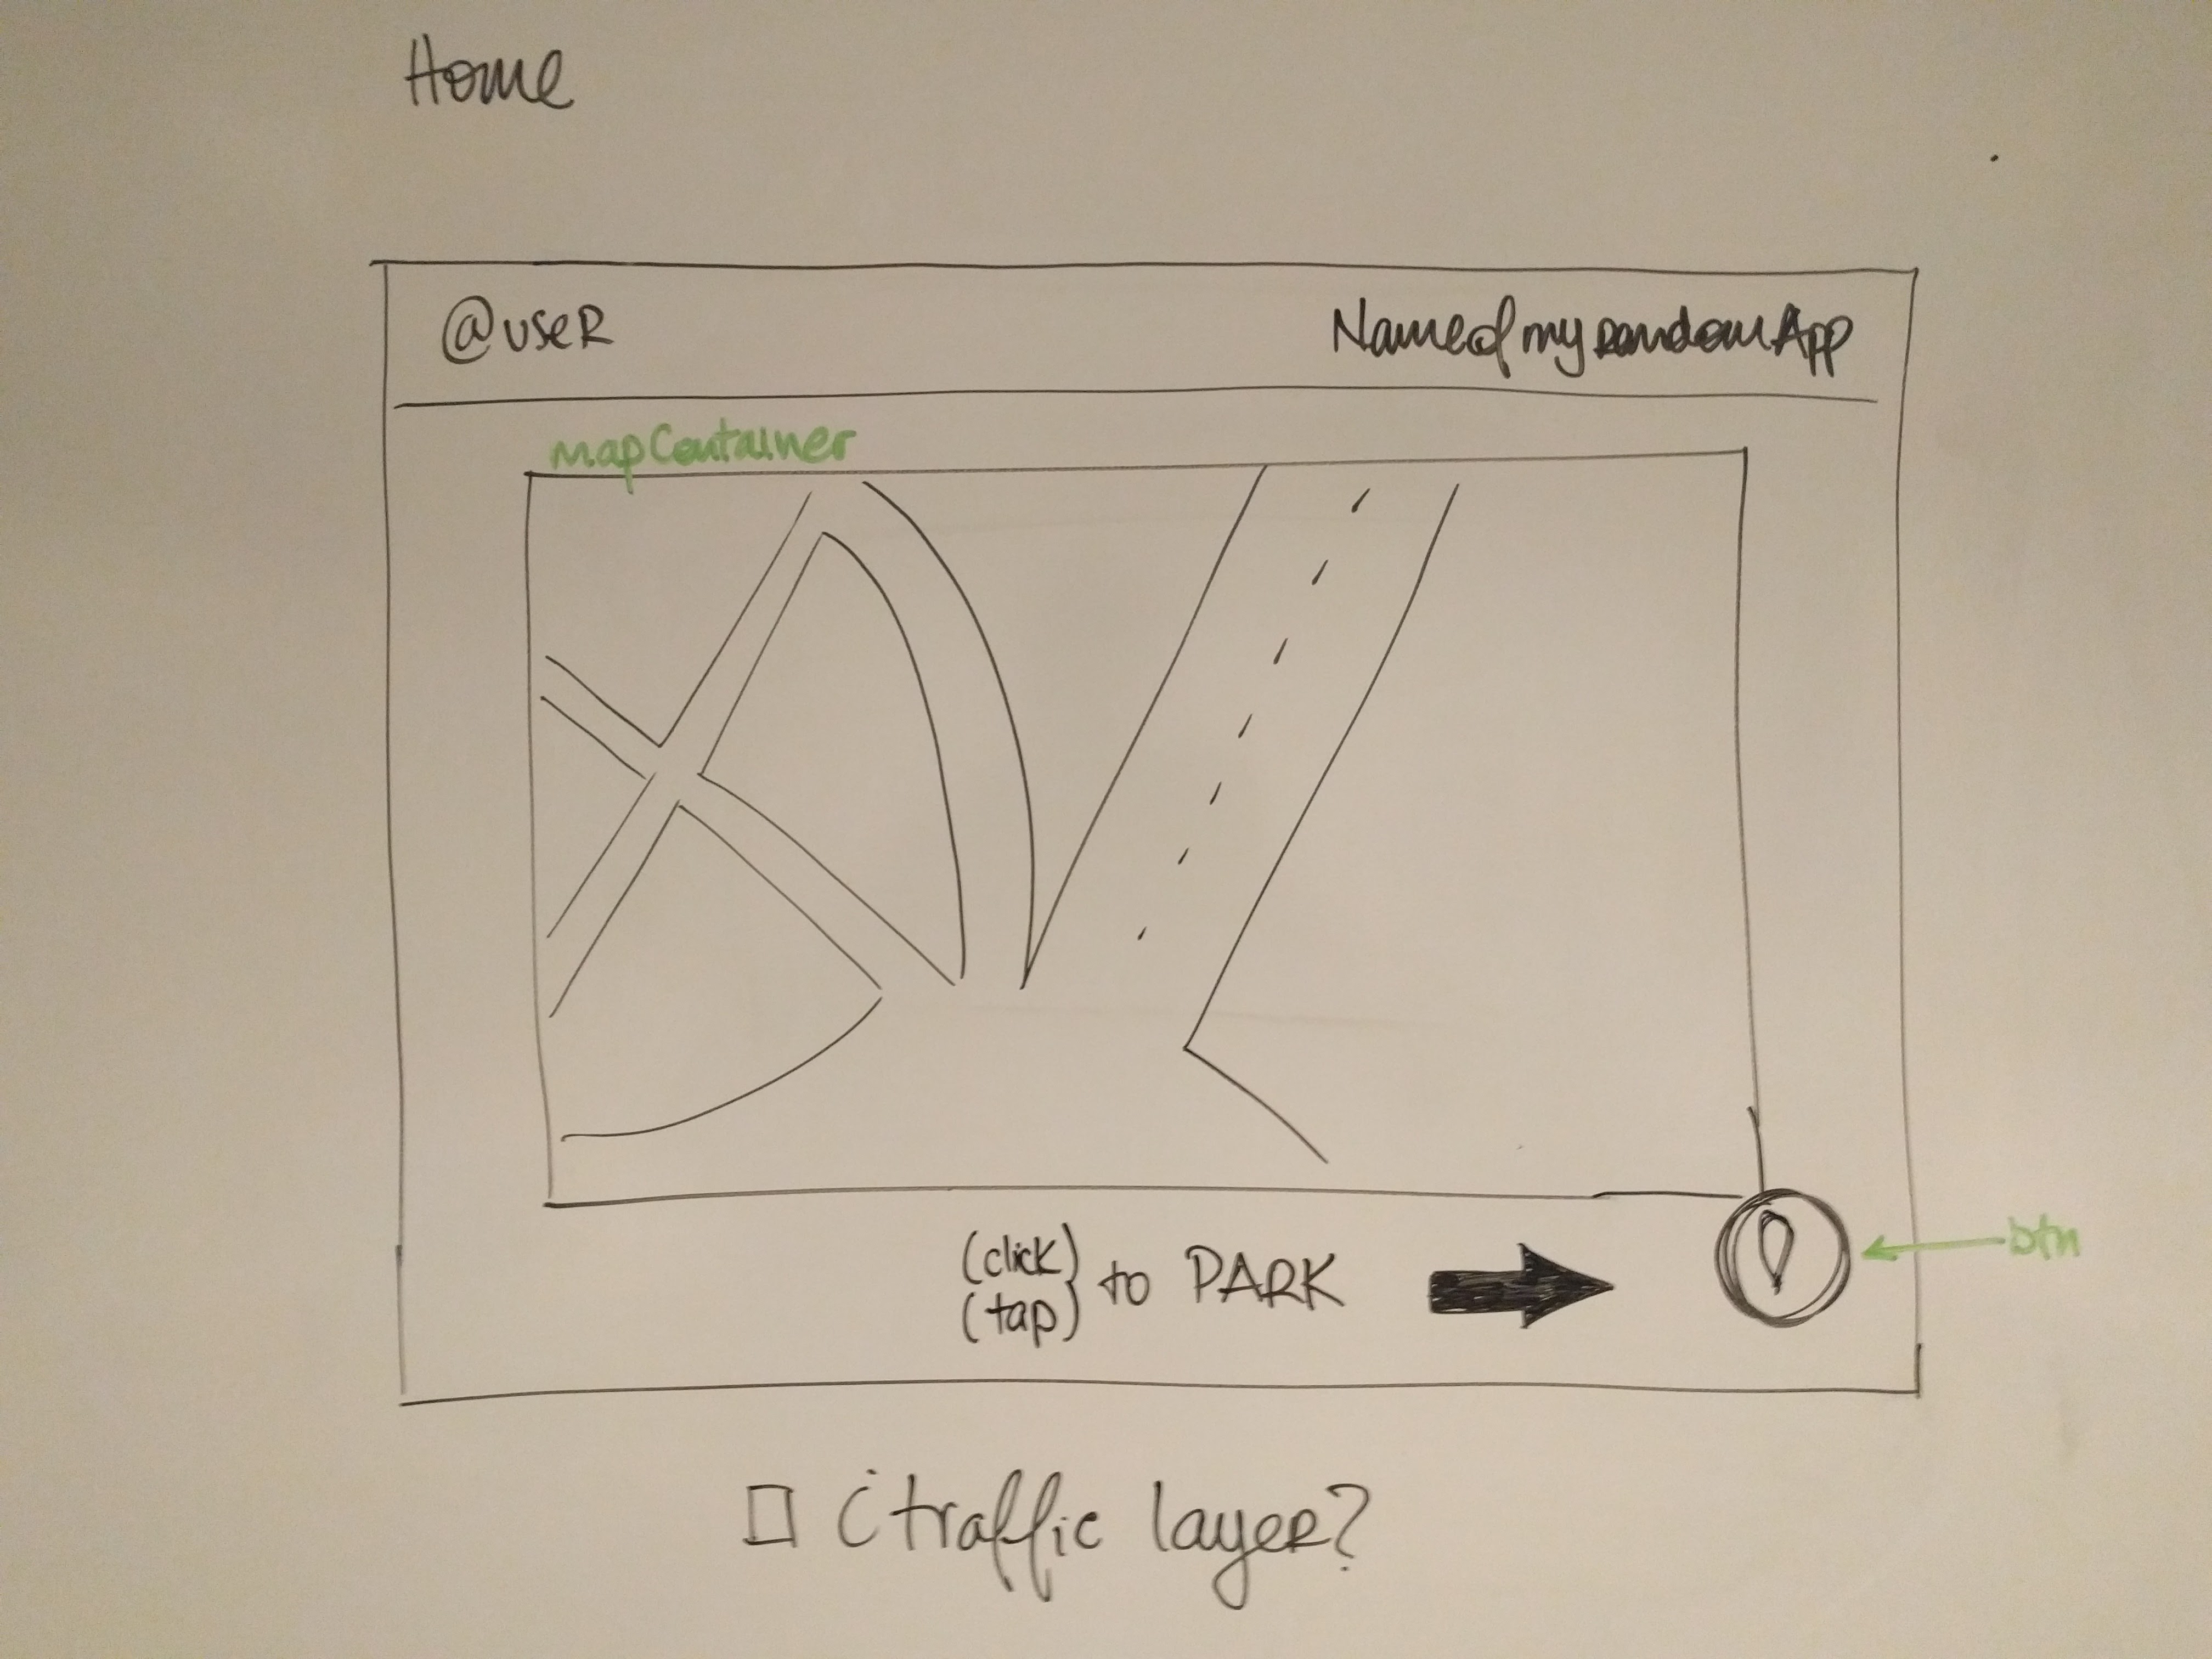 Home
@useR
NameofmyrandomApp
mapContainer
(click)
(tap)
to PARK
btn
¿traffic layeR?